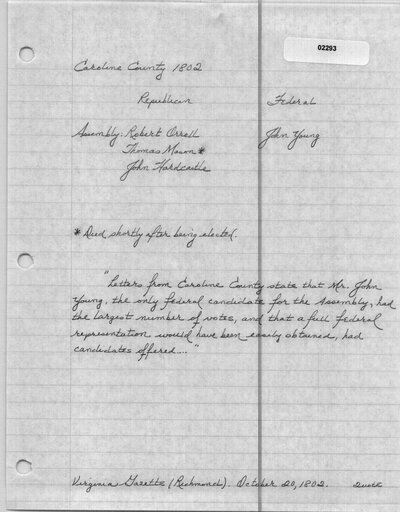 02293
Caroline County 1802
Republican Federal
Assembly: Robert Orrell John Young
Thomas Mason*
John Hardcastle
* Died shortly after being elected.
"Letters from Caroline County state that Mr. John
Young, the only Federal candidate for the Assembly, had
the largest number of votes, and that a full Federal
representation would have been easily obtained, had
candidates offered...."
Virginia Gazette (Richmond). October 20, 1802. Quote